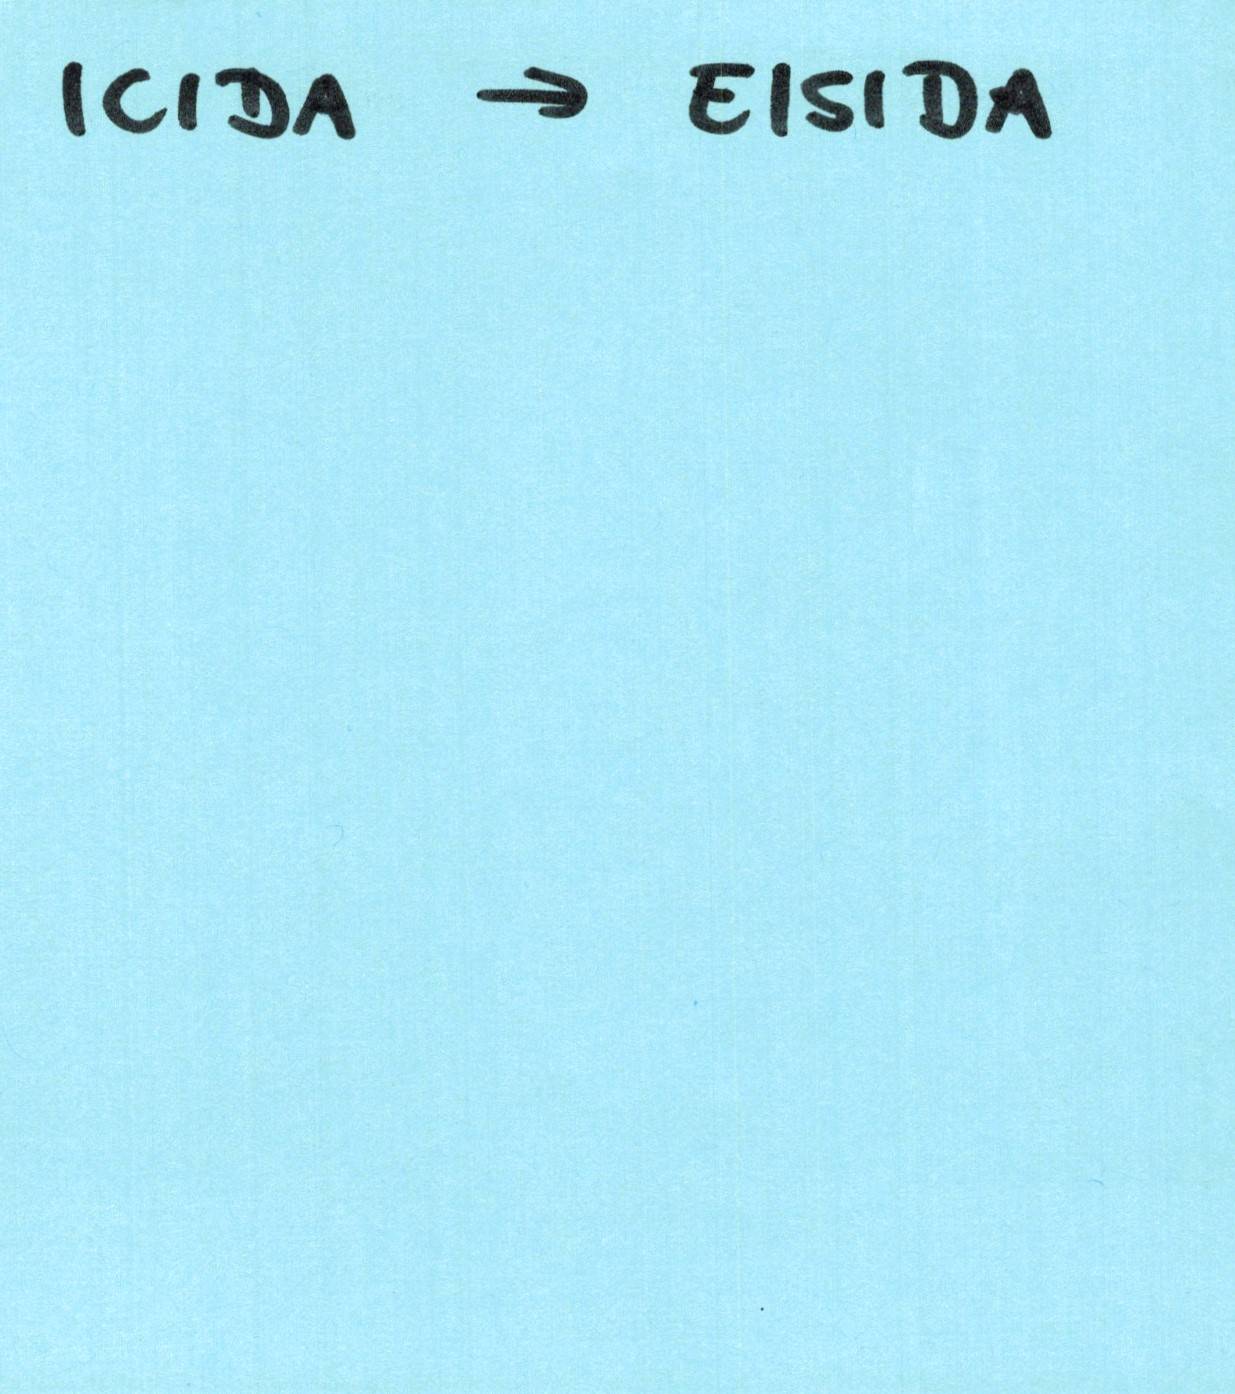 ICIDA → EISIDA